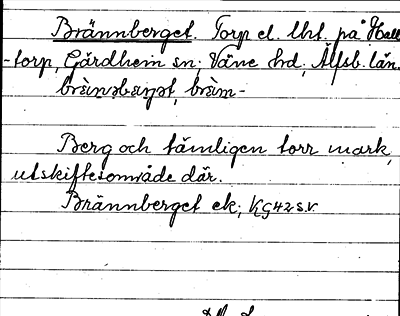 Brännberget. Torp el. lht. på Hall
-torp, Gärdhem sn; Väne hd, Älfsb. län.
Berg och tämligen torr mark,
utskiftesområde där.
Brännberget ek; KG42 s.v.